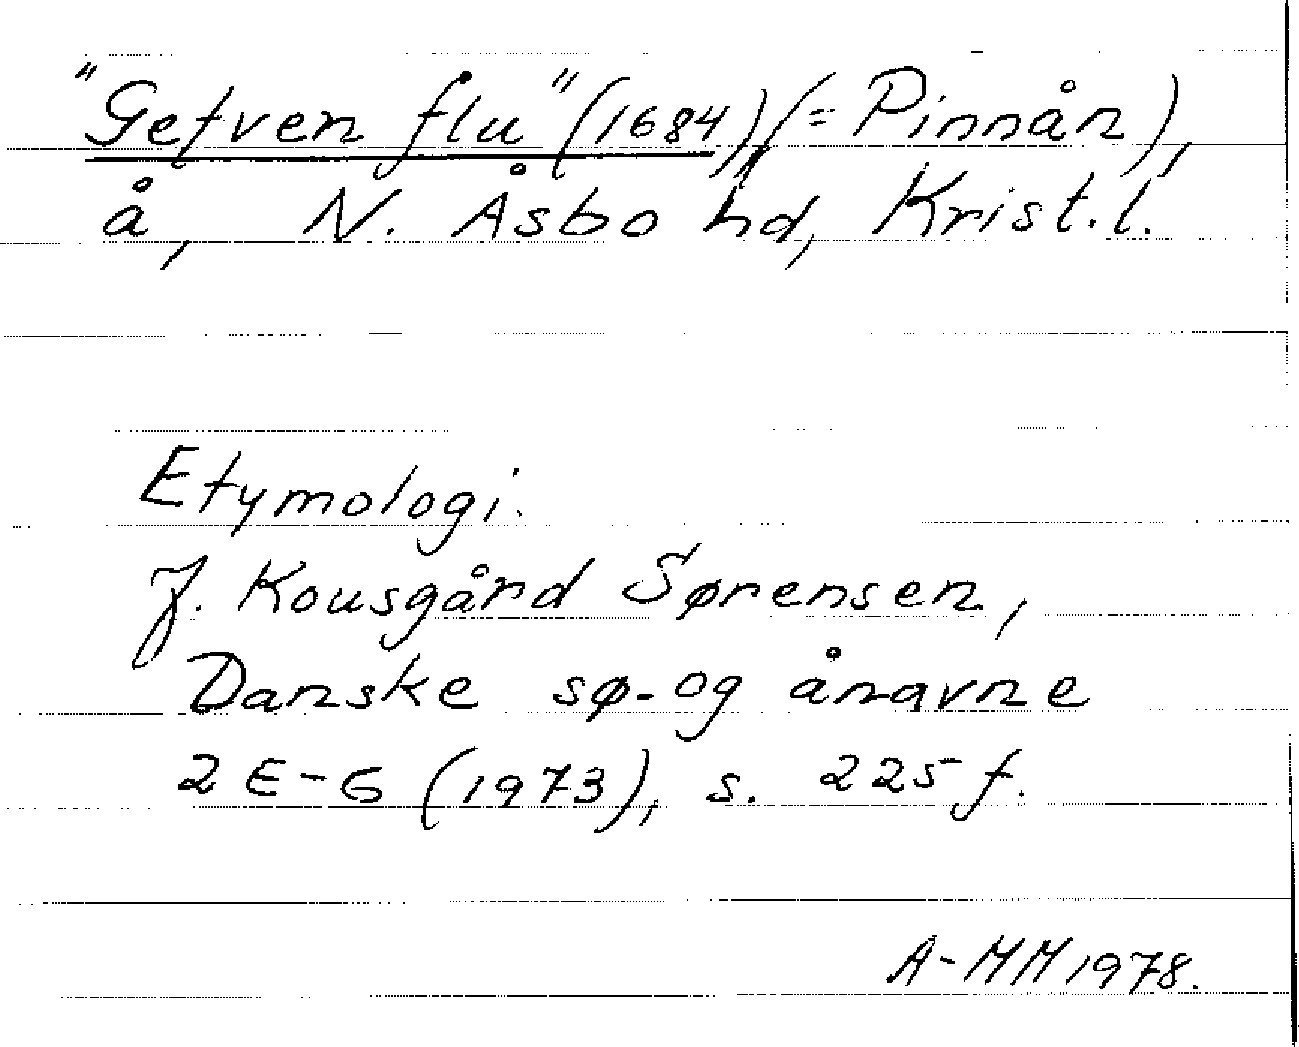 "Gefven flu" (1684) (= Pinnån),
å, N. Åsbo hd, Krist.l.
Etymologi.
J. Kousgård Sørensen,
Danske sø- og ånavne
2 E-G (1973), s. 225 f.
A-MM 1978.